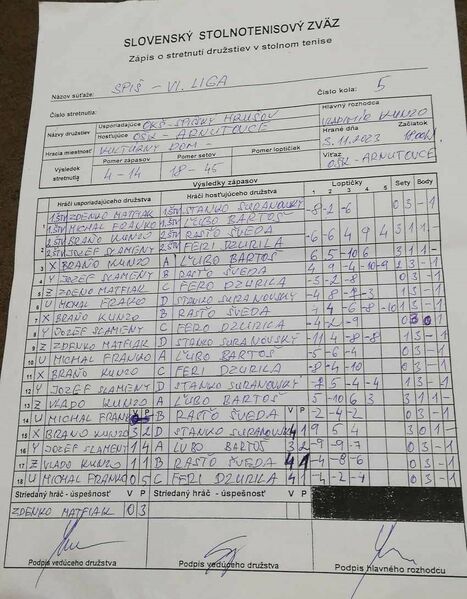 SLOVENSKÝ STOLNOTENISOVÝ ZVÄZ
Zápis o stretnutí družstiev v stolnom tenise
Názov súťaže: SPIŠ - VI. LIGA
Číslo kola: 5
Číslo stretnutia:
Hlavný rozhodca
VLADIMÍR KUNZO
Názvy družstiev
Usporiadajúce OKŠ - SPIŠSKÝ HRUŠOV
Hosťujúce OŠK - ARNUTOVCE
Hrané dňa Začiatok
3.11.2023
Hracia miestnosť KULTÚRNY DOM -
Víťaz
OŠK - ARNUTOVCE
Výsledok stretnutia
Pomer zápasov Pomer setov Pomer loptičiek
4 - 14 18 - 46
Výsledky zápasov
Hráči usporiadajúceho družstva Hráči hosťujúceho družstva Loptičky Sety Body
1 2 3 4 5
1 ZDENKO MATFIAK STANKO SURANOVSKÝ -8 -2 -6 0 3 - 1
MICHAL FRANKO ĽUBO BARTOŠ
2 BRAŇO KUNZO RASŤO ŠVEDA -6 6 4 9 4 3 1 1 -
JOZEF SLAMENÝ FERI DZURILA
3 X BRAŇO KUNZO A ĽUBO BARTOŠ 6 5 -10 6 3 1 1 -
4 Y JOZEF SLAMENÝ B RASŤO ŠVEDA
5 Z ZDENO MATFIAK C FERO DZURILA 0 3 - 1
6 U MICHAL FRANKO D STANKO SURANOVSKÝ 1 3 - 1
7 X BRAŇO KUNZO B RASŤO ŠVEDA
8 Y JOZEF SLAMENÝ C FERO DZURILA -4 -2 -9 0 3 0 1
9 Z ZDENKO MATFIAK D STANKO SURANOVSKÝ -11 4 -8 -8 1 3 - 1
10 U MICHAL FRANKO A ĽUBO BARTOŠ -5 -6 -4 0 3 - 1
11 X BRAŇO KUNZO C FERI DZURILA -8 -4 -10 0 3 - 1
12 Y JOZEF SLAMENÝ D STANKO SURANOVSKÝ 5 -4 -4 1 3 - 1
13 Z VLADO KUNZO A ĽUBO BARTOŠ 5 -10 6 3 3 1 1 -
V P V P
14 U MICHAL FRANKO B RASŤO ŠVEDA -2 -4 -2 0 3 - 1
15 X BRAŇO KUNZO 3 2 D STANKO SURANOVSKÝ 4 1 9 5 4 3 0 1 -
16 Y JOZEF SLAMENÝ 1 4 A ĽUBO BARTOŠ 3 2 -9 -9 -7 0 3 - 1
17 Z VLADO KUNZO 1 1 B RASŤO ŠVEDA 4 1 -4 -8 -6 0 3 - 1
18 U MICHAL FRANKO 0 5 C FERI DZURILA 4 1 -4 -2 -7 0 3 - 1
Striedaný hráč - úspešnosť V P Striedaný hráč - úspešnosť V P
ZDENKO MATFIAK 0 3
Podpis vedúceho družstva Podpis vedúceho družstva Podpis hlavného rozhodcu